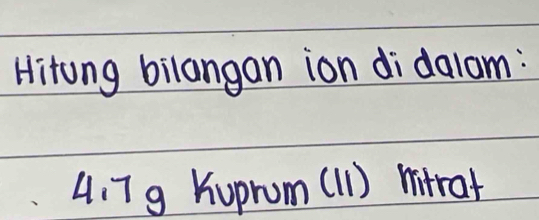 Hitung bilangan ion di dalam:
4.7 g Kuprum (II) nitrat